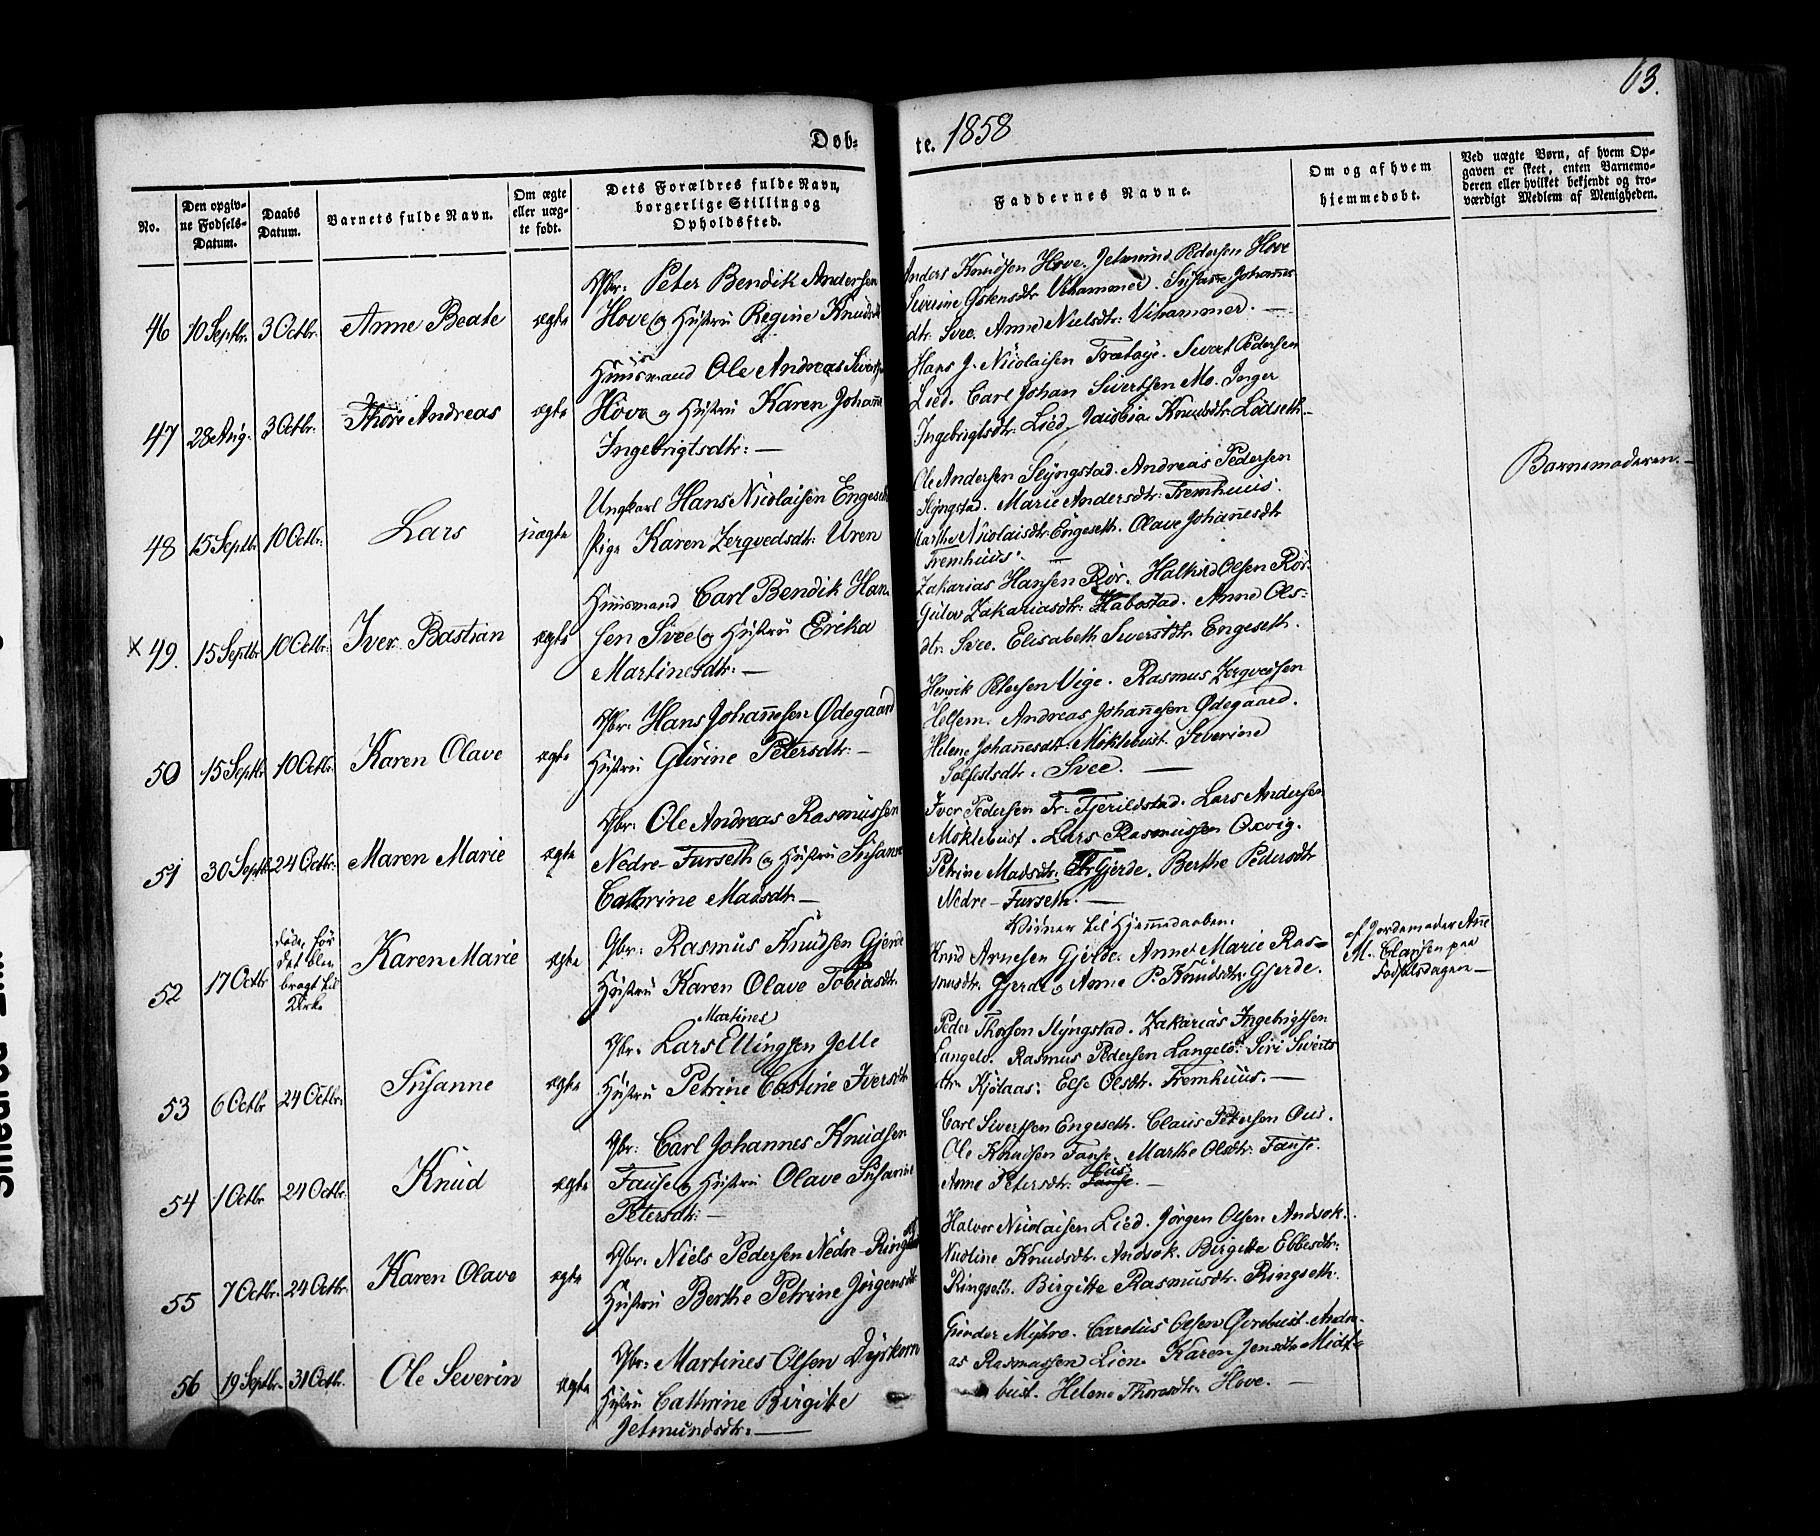 63.
Døb-
te. 1858
No.
Den opgiv-
ne Fødsels-
Datum.
Daabs
Datum.
Barnets fulde Navn.
Om ægte
eller uæg-
te født.
Dets Forældres fulde Navn,
borgerlige Stilling og
Opholdssted.
Faddernes Navne.
Om og af hvem
hjemmedøbt.
Ved uægte Børn, af hvem Op-
gaven er skeet, enten Barnemo-
deren eller hvilket bekjendt og tro-
værdigt Medlem af Menigheden.
46 10 Septbr. 3 Octbr. Anne Beate ægte
Gbr: Peter Bendik Andersen
Hove og Hustru Regine Knudsdtr
Anders Knudsen Hove. Jetmund Pedersen Hove
Severine Østensdtr. Vihammer. Susanne Johannes-
dtr. Svee. Anne Nielsdtr: Vihammer. —
47 28 Aug. 3 Octbr. Andreas ægte
Huusmand Ole Andreas
Hove og Hustru Karen Johanne
Ingebrigtsdtr: —
Hans J. Nicolaisen Trætøye. Sivert Pedersen
Lied. Carl Johan Sivertsen Mo. Inger
Ingebrigtsdtr: Lied. Jacobia Knudsdtr. Lødseth
48 15 Septbr 10 Octbr. Lars uægte
Ungkarl Hans Nicolaisen Engeseth
Pige Karen Zergvedsdtr: Uren
Ole Andersen Slyngstad. Andreas Pedersen
Slyngstad. Marie Andersdtr: Fremhuus.
Marthe Nicolaisdtr: Engeseth. Olave Johannesdtr
Fremhuus. —
Barnemoderen. —
x 49. 15 Septbr 10 Octbr: Iver Bastian ægte
Huusmand Carl Bendik Han-
sen Svee og Hustru Erika
Martinesdtr: —
Zakarias Hansen Rør. Halkild Olsen Rør.
Gulov Zakariasdtr: Habostad. Anne Ols-
dtr. Svee. Elisabeth Sivertsdtr. Engeseth.
50 15 Septbr 10 Octbr. Karen Olave ægte
Gbr: Hans Johannesen Ødegaard
Hustru Gurine Petersdtr: —
Henrik Petersen Vige. Rasmus Zergvedsen
Helsem. Andreas Johannesen Ødegaard.
Helene Johannesdtr: Møklebust. Severine
Svee. —
51 30 Septbr 24 Octbr: Maren Marie ægte
Gbr: Ole Andreas Rasmussen
Nedre-Furseth og Hustru Susanne
Cathrine Madsdtr. —
Iver Pedersen Fr. Fjerildstad. Lars Andersen
Møklebust. Lars Rasmussen Oxvig.
Petrine Madsdtr: Gjerde. Berthe Pedersdtr
Nedre-Furseth. —
52 17 Octbr
døde, før
det blev
bragt til
Kirke
Karen Marie ægte
Gbr: Rasmus Knudsen Gjerde
Hustru Karen Olave Tobiasdtr.
Vidner til Hjemmedaaben.
Knud Arnesen Gjerde. Anne Marie Ras-
musdtr. Gjerde. Anne P. Knudsdtr. Gjerde.
af Jordemoder Anne
M. Clausen paa
Fødselsdagen —
53 6 Octbr 24 Octbr: Susanne ægte
Martines
Gbr. Lars Ellingsen Jelle
Hustru Petrine Iversdtr
Peder Thorsen Slyngstad. Zakarias Ingebrigtsen
Langelo. Rasmus Pedersen Langelo. Siri Siverts
dtr. Kjølaas: Else Olsdtr. Fremhuus. —
54 1 Octbr 24 Octbr. Knud ægte
Gbr: Carl Johannes Knudsen
Fause og Hustru Olave Susanne
Petersdtr: —
Carl Sivertsen Engeseth. Claus Petersen Ous.
Ole Knudsen Fause. Marthe Olsdtr. Fause.
Ous
Anne Petersdtr: Fause. —
55 7 Octbr. 24 Octbr. Karen Olave ægte
Gbr. Niels Pedersen Nedre-Ringseth
Hustru Berthe Petrine Jørgensdtr.
Halvor Nicolaisen Lied. Jørgen Olsen Andsok.
Nicoline Knudsdtr. Andsok. Birgitte Ebbesdtr.
Ringseth. Birgitte Rasmusdtr. Ringseth.
56 19 Septbr. 31 Octbr. Ole Severin ægte
Gbr: Martines Olsen Dyrkorn
Hustru Cathrine Birgitte
Jetmundsdtr: —
Gunder Myhre. Carolus Olsen Andre-
as Rasmussen Lien. Karen Jensdtr. Midt-
bust. Helene Thoresdtr. Hove. —